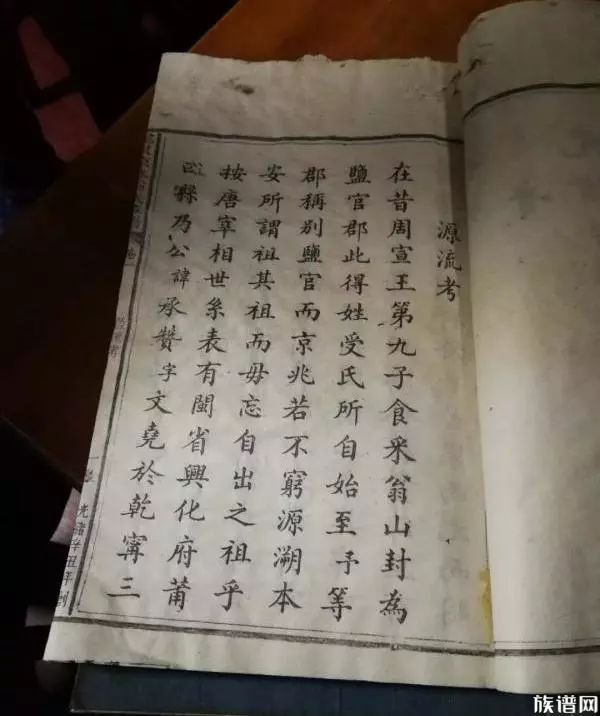 源流考
在昔周宣王第九子食采翁山封為
鹽官郡此得姓受氏所自始至予等
郡稱別鹽官而京兆若不窮源溯本
安所謂祖其祖而毋忘自出之祖乎
按唐宰相世系表有閩省興化府莆
縣乃公諱承贊字文堯於乾寧三
卷一
一張
光緒辛丑年
族谱网